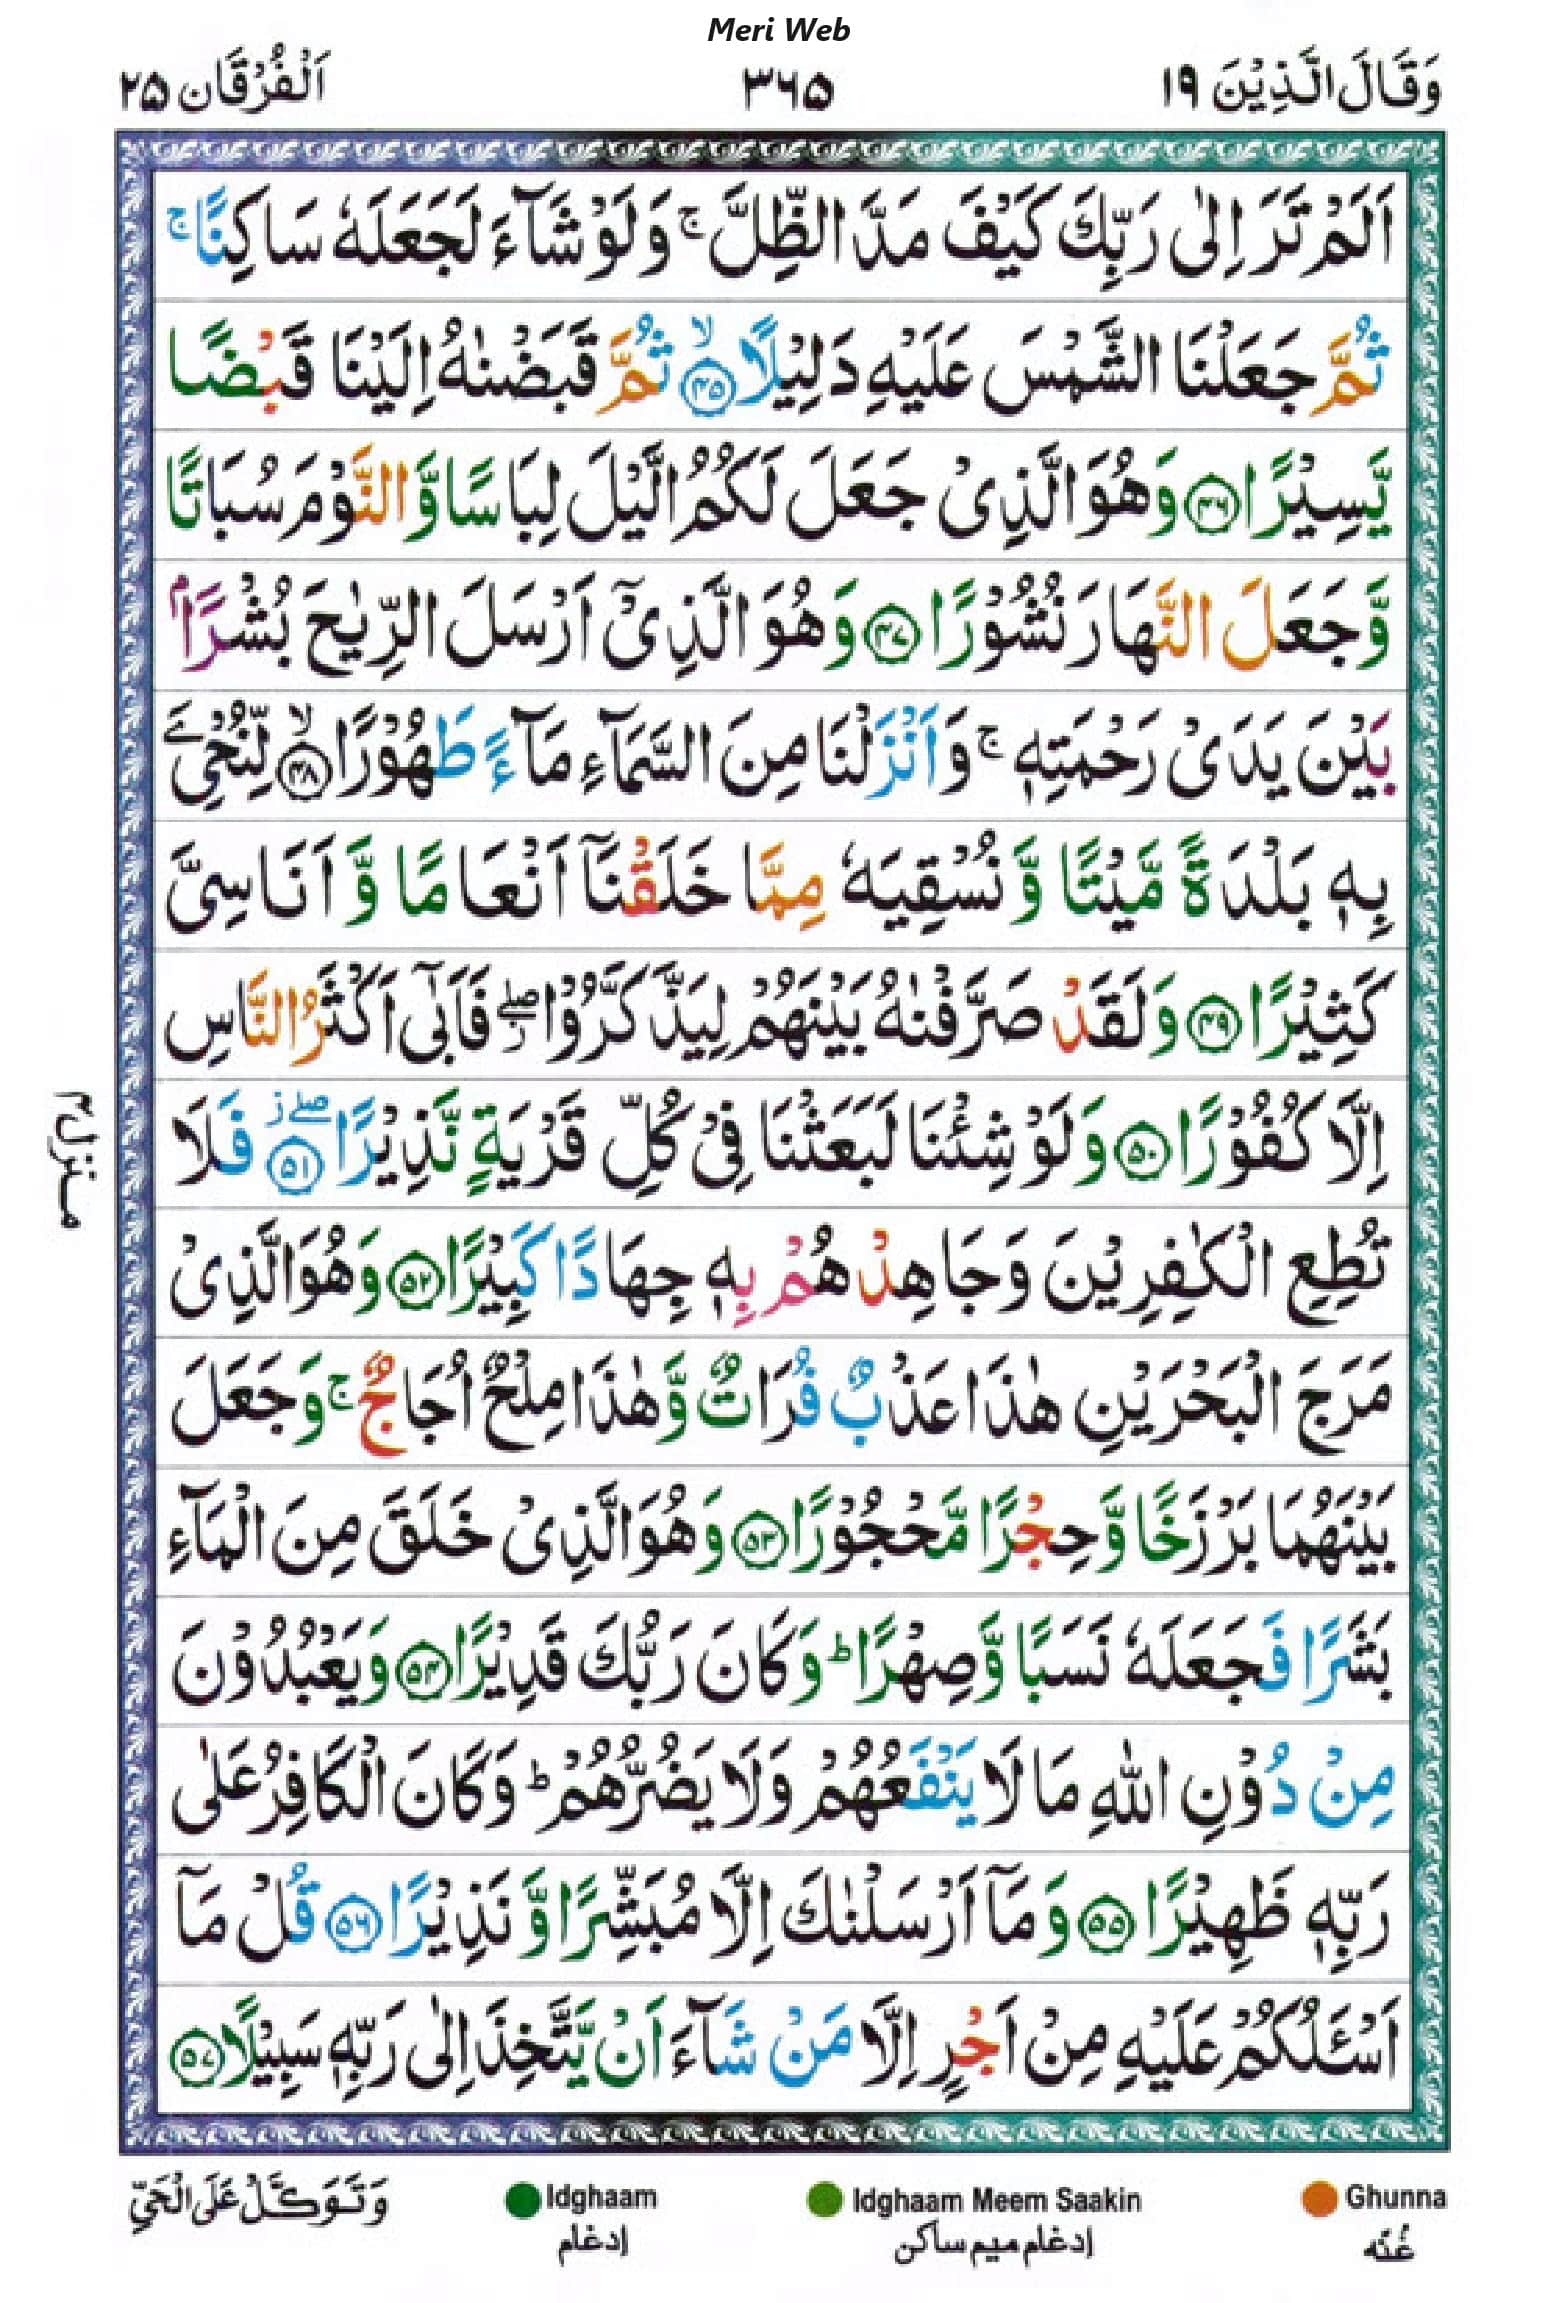 Meri Web
وَقَالَ الَّذِيْنَ ١٩
٣٦٥
اَلْفُرْقَان ٢٥
اَلَمْ تَرَ اِلٰى رَبِّكَ كَيْفَ مَدَّ الظِّلَّ ۚ وَلَوْ شَآءَ لَجَعَلَهٗ سَاكِنًا ۚ
ثُمَّ جَعَلْنَا الشَّمْسَ عَلَيْهِ دَلِيْلًا ۙ‏﴿۴۵﴾ ثُمَّ قَبَضْنٰهُ اِلَيْنَا قَبْضًا
يَّسِيْرًا ﴿۴۶﴾ وَهُوَ الَّذِىْ جَعَلَ لَكُمُ الَّيْلَ لِبَاسًا وَّالنَّوْمَ سُبَاتًا
وَّجَعَلَ النَّهَارَ نُشُوْرًا ﴿۴۷﴾ وَهُوَ الَّذِىْۤ اَرْسَلَ الرِّيٰحَ بُشْرًاۢ
بَيْنَ يَدَىْ رَحْمَتِهٖ ۚ وَاَنْزَلْنَا مِنَ السَّمَآءِ مَآءً طَهُوْرًا ۙ﴿۴۸﴾ لِّنُحْیِۦَ
بِهٖ بَلْدَةً مَّيْتًا وَّنُسْقِيَهٗ مِمَّا خَلَقْنَاۤ اَنْعَامًا وَّاَنَاسِىَّ
كَثِيْرًا ﴿۴۹﴾ وَلَقَدْ صَرَّفْنٰهُ بَيْنَهُمْ لِيَذَّكَّرُوْا ۖ فَاَبٰٓى اَكْثَرُ النَّاسِ
اِلَّا كُفُوْرًا ﴿۵۰﴾ وَلَوْ شِئْنَا لَبَعَثْنَا فِىْ كُلِّ قَرْيَةٍ نَّذِيْرًا ۖز ﴿۵۱﴾ فَلَا
تُطِعِ الْكٰفِرِيْنَ وَجَاهِدْهُمْ بِهٖ جِهَادًا كَبِيْرًا ﴿۵۲﴾ وَهُوَ الَّذِىْ
مَرَجَ الْبَحْرَيْنِ هٰذَا عَذْبٌ فُرَاتٌ وَّهٰذَا مِلْحٌ اُجَاجٌ ۚ وَجَعَلَ
بَيْنَهُمَا بَرْزَخًا وَّحِجْرًا مَّحْجُوْرًا ﴿۵۳﴾ وَهُوَ الَّذِىْ خَلَقَ مِنَ الْمَآءِ
بَشَرًا فَجَعَلَهٗ نَسَبًا وَّصِهْرًا ؕ وَكَانَ رَبُّكَ قَدِيْرًا ﴿۵۴﴾ وَيَعْبُدُوْنَ
مِنْ دُوْنِ اللّٰهِ مَا لَا يَنْفَعُهُمْ وَلَا يَضُرُّهُمْ ؕ وَكَانَ الْكَافِرُ عَلٰى
رَبِّهٖ ظَهِيْرًا ﴿۵۵﴾ وَمَاۤ اَرْسَلْنٰكَ اِلَّا مُبَشِّرًا وَّنَذِيْرًا ﴿۵۶﴾ قُلْ مَاۤ
اَسْئَلُكُمْ عَلَيْهِ مِنْ اَجْرٍ اِلَّا مَنْ شَآءَ اَنْ يَّتَّخِذَ اِلٰى رَبِّهٖ سَبِيْلًا ﴿۵۷﴾
منزل ۴
وَتَوَكَّلْ عَلَى الْحَىِّ
Idghaam
إدغام
Idghaam Meem Saakin
إدغام ميم ساكن
Ghunna
غُنّه